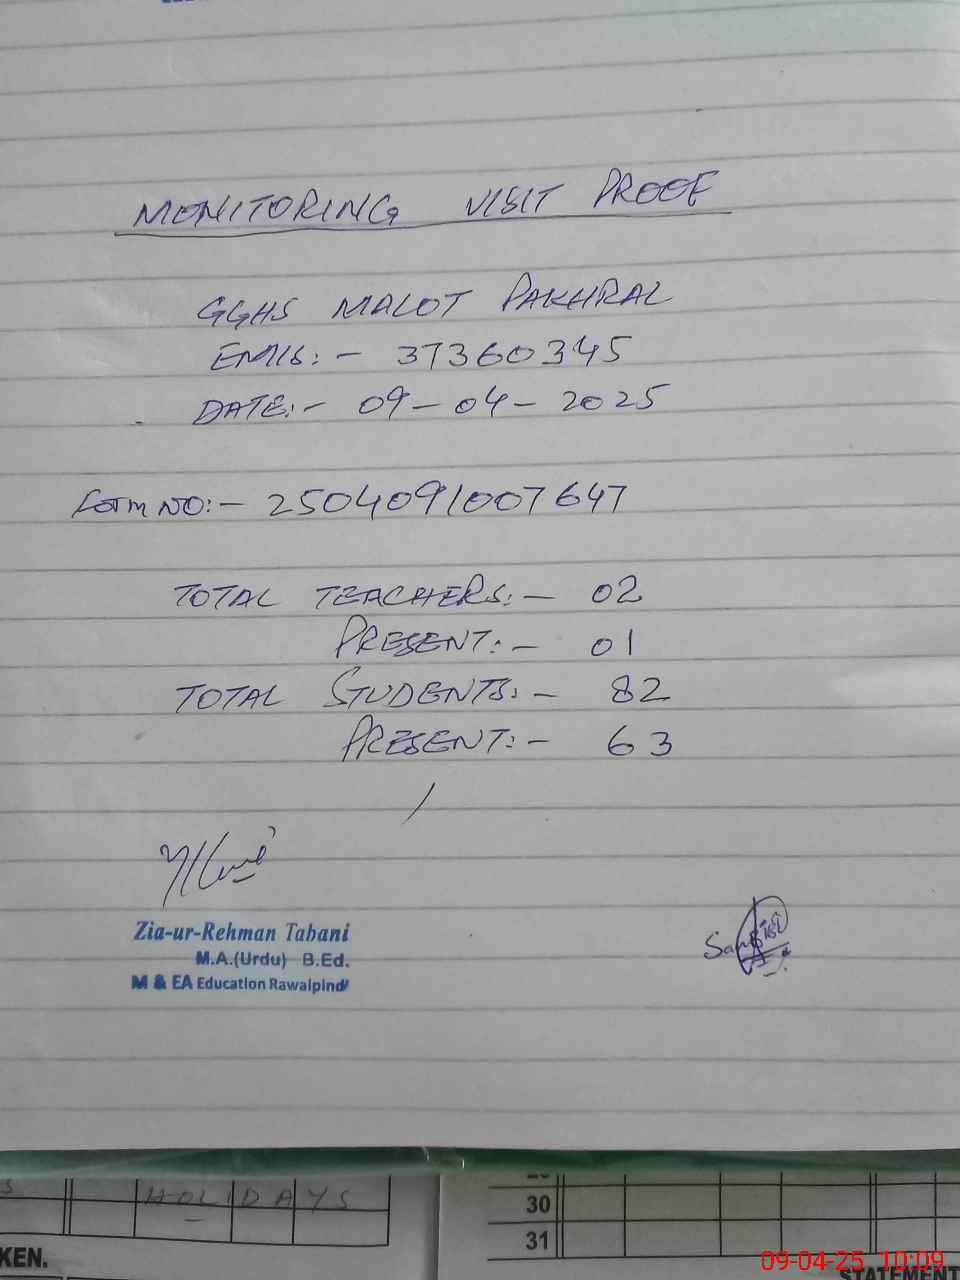 MONITORING VISIT PROOF
GGHS MALOT PAKHRAL
EMIS:- 37360345
DATE:- 09-04-2025
Form NO:- 2504091007647
TOTAL TEACHERS:- 02
PRESENT:- 01
TOTAL STUDENTS:- 82
PRESENT:- 63
Zia-ur-Rehman Tabani
M.A.(Urdu) B.Ed.
M & EA Education Rawalpindi
HOLIDAYS
30
31
KEN.
STATEMENT
09-04-25 10:09